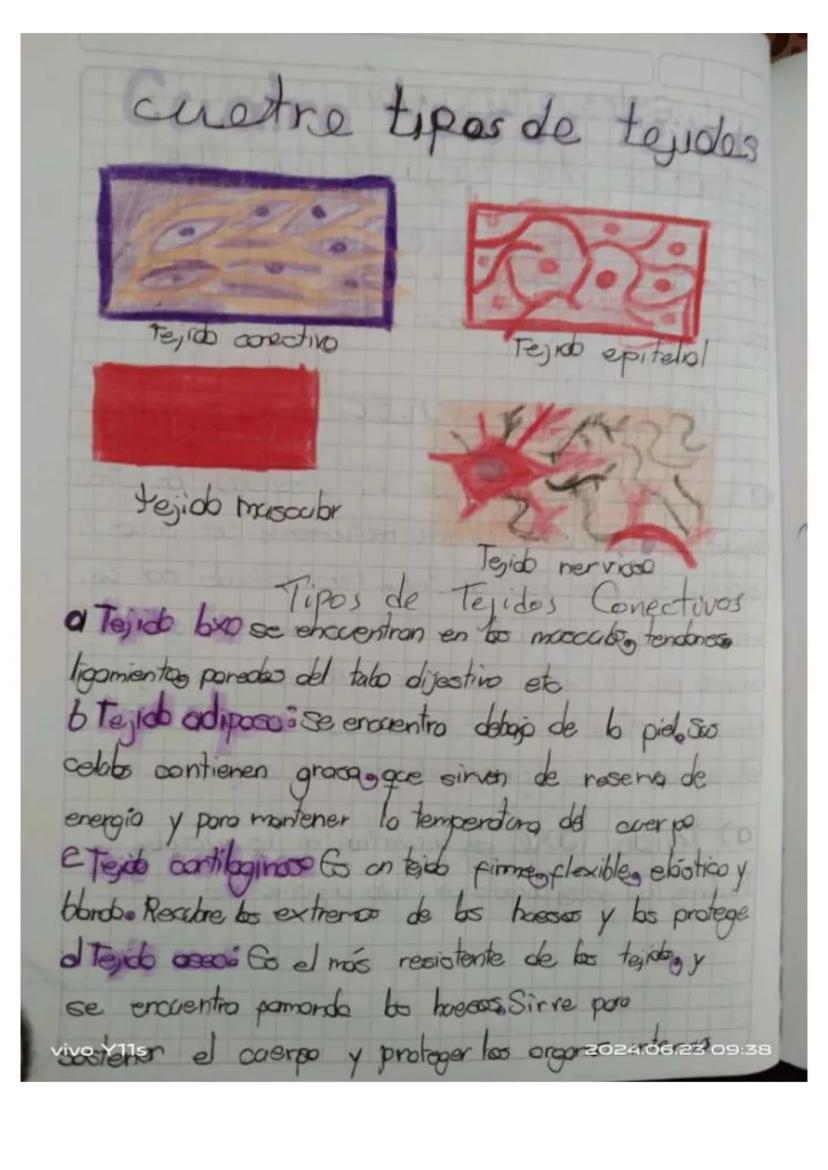 Cuatro tipos de tejidos
Tejido conectivo
Tejido epitelial
tejido muscular
Tejido nervioso
Tipos de Tejidos Conectivos
a Tejido laxo se encuentran en los musculos, tendones
ligamientos paredes del tubo dijestivo etc
b Tejido adiposo: Se encuentra debajo de la piel. Sus
celulas contienen grasa, que sirven de reserva de
energía y para mantener la temperatura del cuerpo
c Tejido cartilaginoso Es un tejido firme, flexible, elástico y
blando. Recubre los extremos de los huesos y los protege
d Tejido oseo: Es el más resistente de los tejidos, y
se encuentra formando los huesos. Sirve para
sostener el cuerpo y proteger los organos internos
vivo Y11s
2024.06.23 09:38